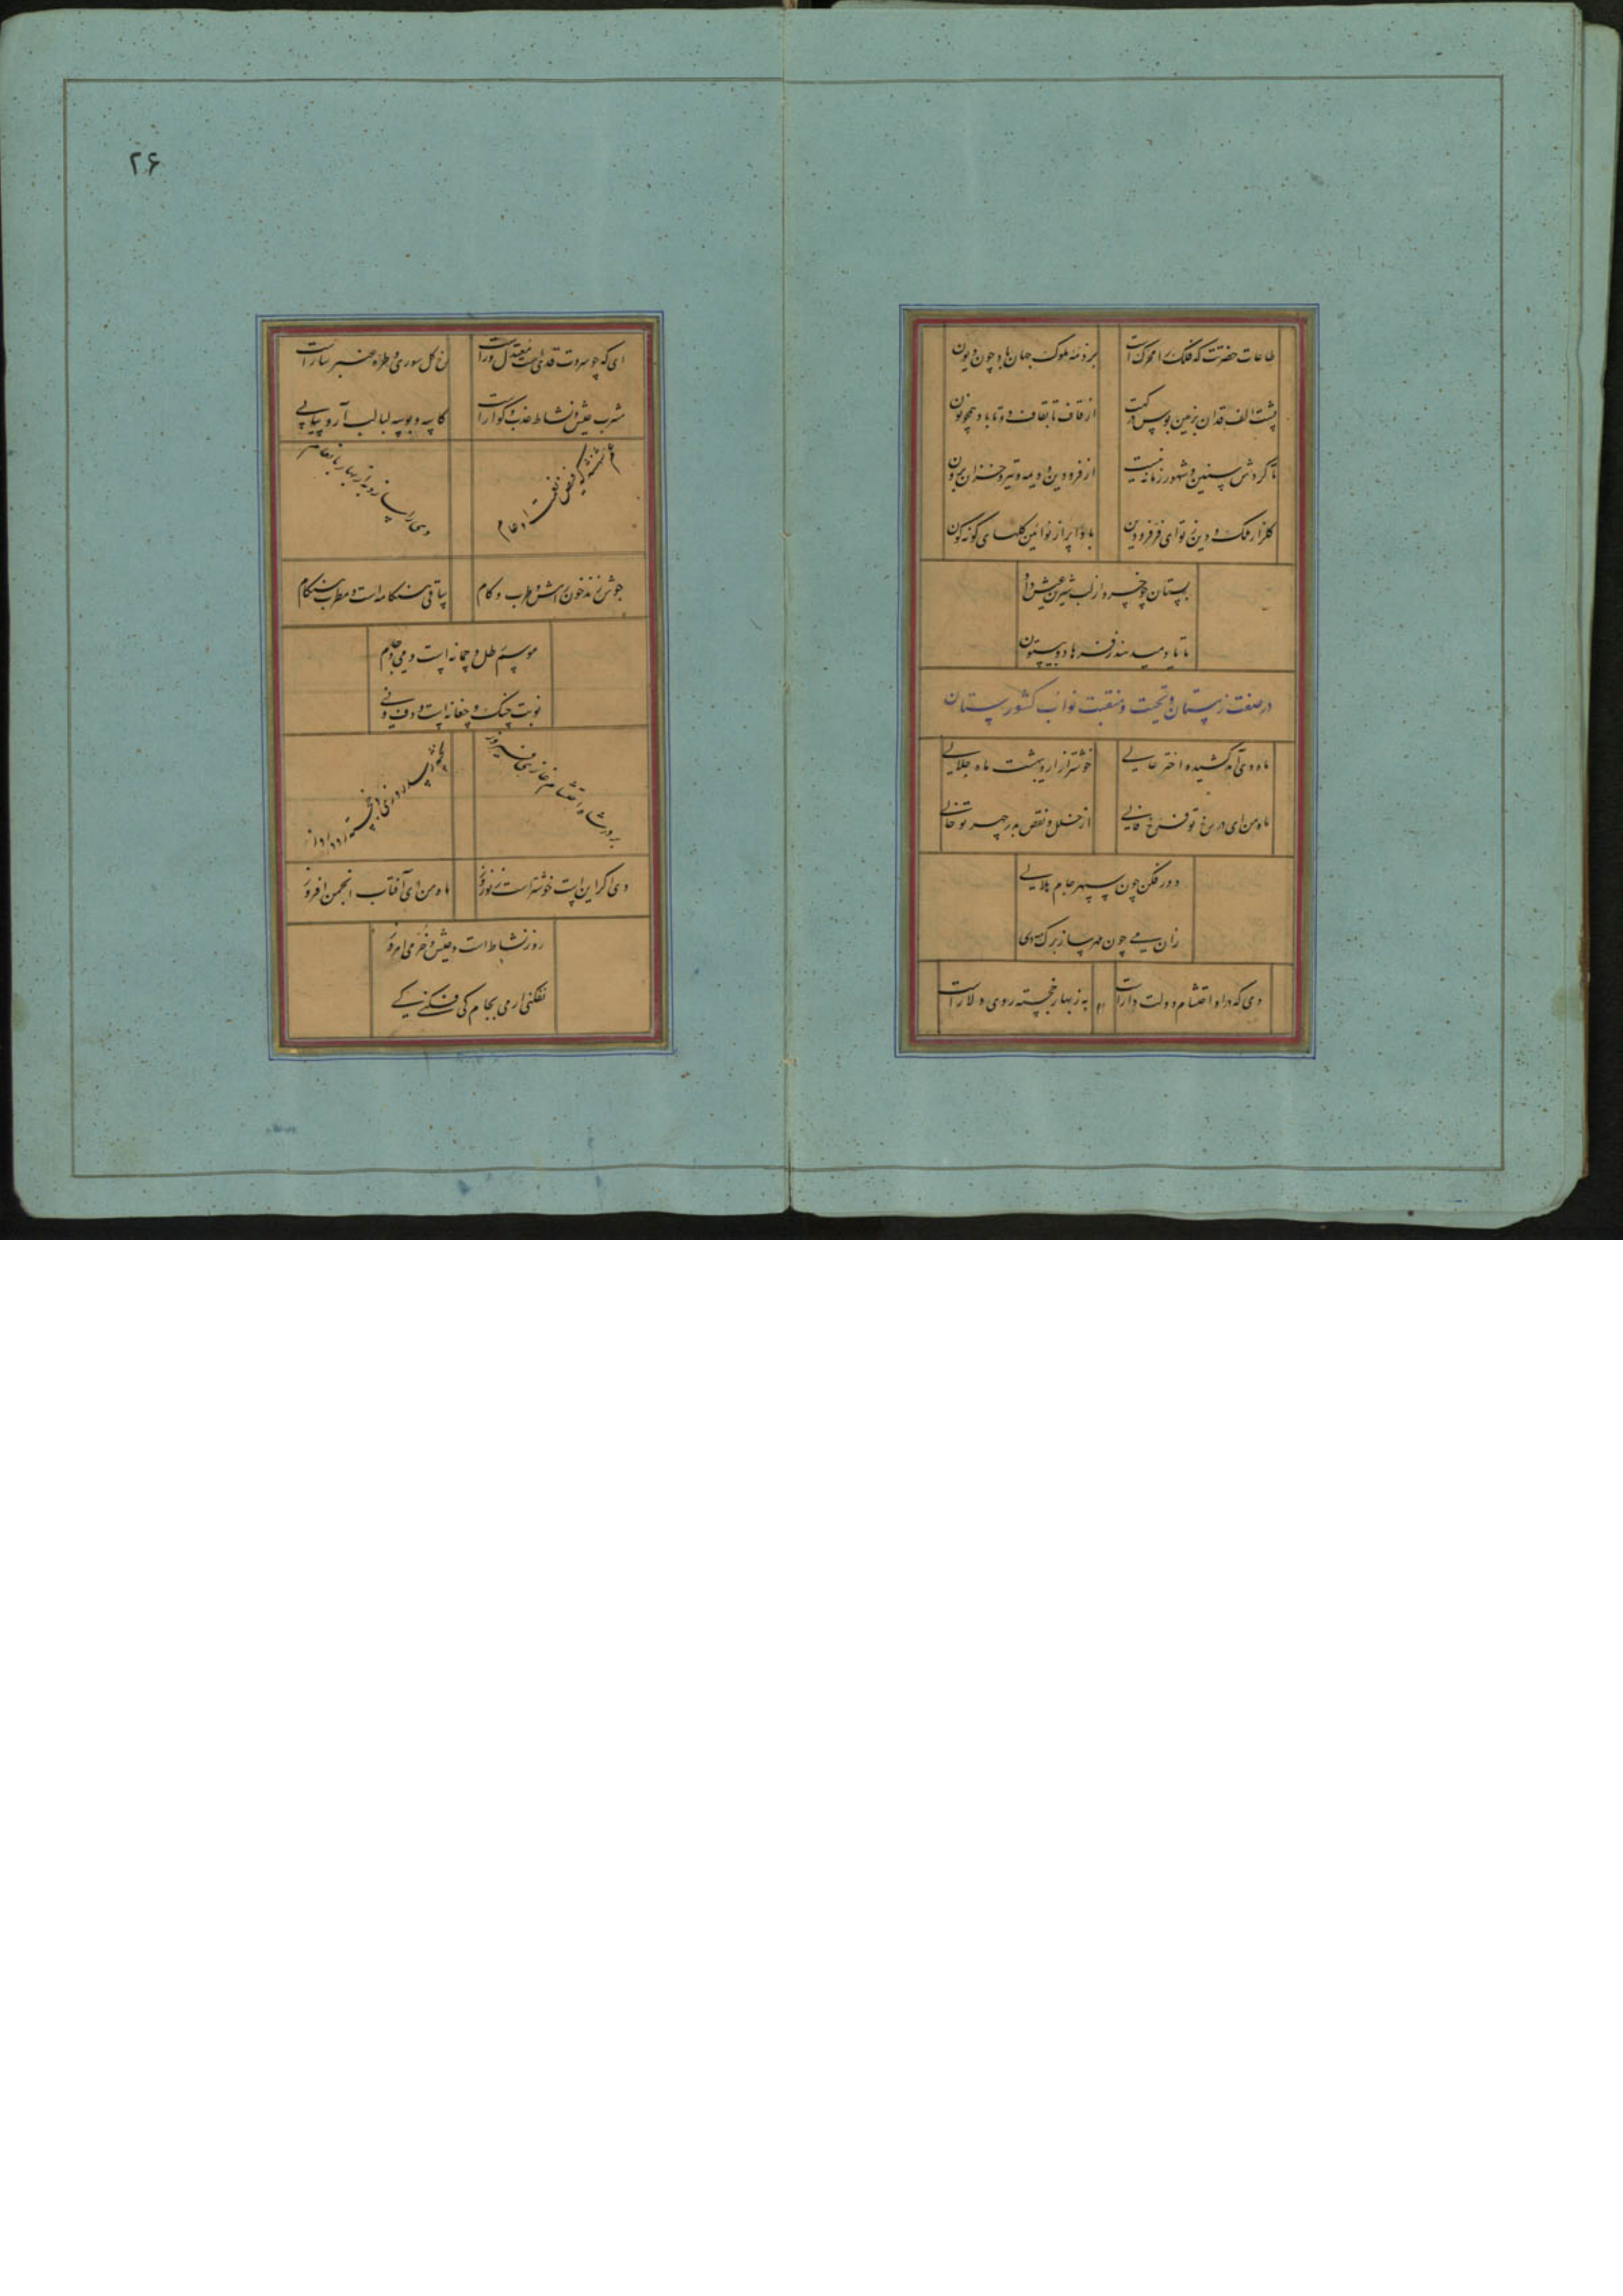 طاعات حضرتت که فلک را محرک است
بر ذمه ملوک جهان باد چون دیون
پشت الف قدان بزمین بوس درگهت
از قاف تا بقاف دو تا باد همچو نون
تا گردش سنین و شهور زمانه نیست
از فرودین و دیمه و تیر و خزان برون
گلزار ملک و دین ز تو ای فر فرودین
بادا پر از نوائین گلهای گونه گون
بستان چو خسرو از لب شیرین عیش داد
تا تا دمید
در صفت زمستان و تحیت و منقبت نواب کشورستان
ماه دی آمد کشیده اختر عالی
خوشتر از اردیبهشت ماه جلالی
ماه من ای در رخ تو فرخ فالی
از خلل و نقص بدر چهر تو خالی
دور فکن چون سپهر جام هلالی
زان می چون مهر ساز برگ مه دی
دی که در او احتشام دولت داراست
به ز بهار خجسته روی دلاراست
۲۶
ای که چو سروت قدی است معتدل و راست
رخ گل سوری و طره عنبر ساراست
مشرب عیش و نشاط عذب و گواراست
کاسه و بوسه لبالب آر و پیاپی
عم شهنشه که فیض
دی را سازد به از بهار بانعام
جوش زند خون عیش و طرب و کام
ساقی هنگامه است و مطرب هنگام
موسم طل و چمانه است و می و جام
نوبت چنگ و چغانه است و دف و نی
دی اگر این است خوشتر است ز نوروز
ماه من ای آفتاب انجمن افروز
روز نشاط است و عیش و خرمی امروز
نفکنی ار می بجام کی فکنی کی